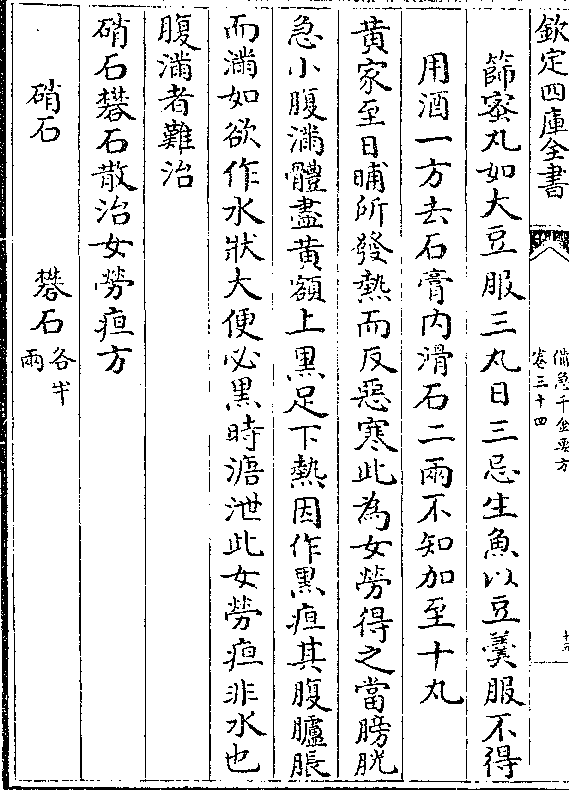 欽定四庫全書
備急千金要方
卷三十四
篩蜜丸如大豆服三丸日三忌生魚以豆羹服不得
用酒一方去石膏内滑石二兩不知加至十丸
黄家至日晡所發熱而反惡寒此為女勞得之當膀胱
急小腹滿體盡黄額上黒足下熱因作黒疸其腹臚脹
而滿如欲作水狀大便必黒時溏泄此女勞疸非水也
腹滿者難治
硝石礬石散治女勞疸方
硝石 礬石各半兩